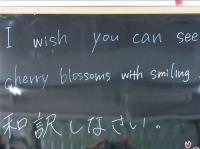 I wish you can see
cherry blossoms with smiling.
和訳しなさい。